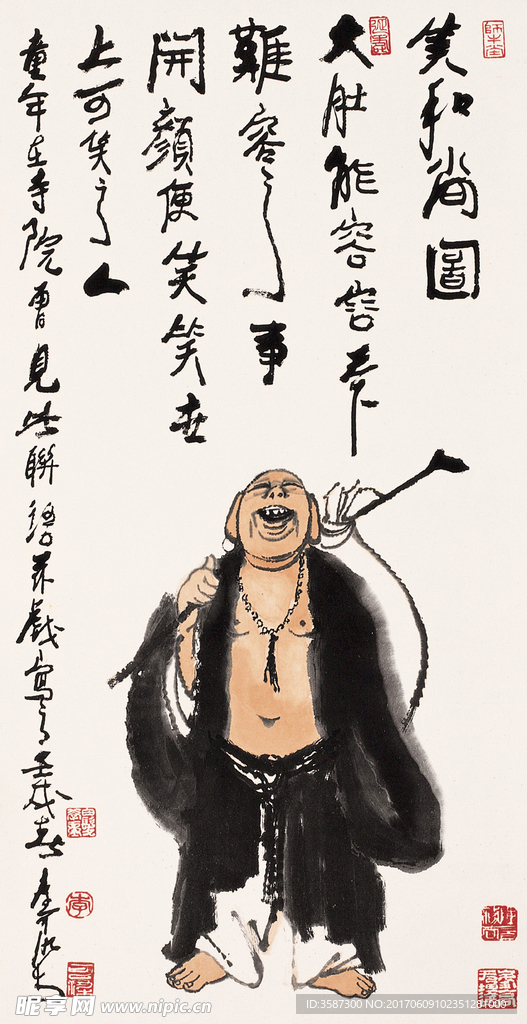 笑和尚圖
大肚能容容天下
難容之事
開顏便笑笑世
上可笑之人
童年在寺院曾見此聯語戲寫之壬戌春
昵享网 www.nipic.cn
ID:3587300